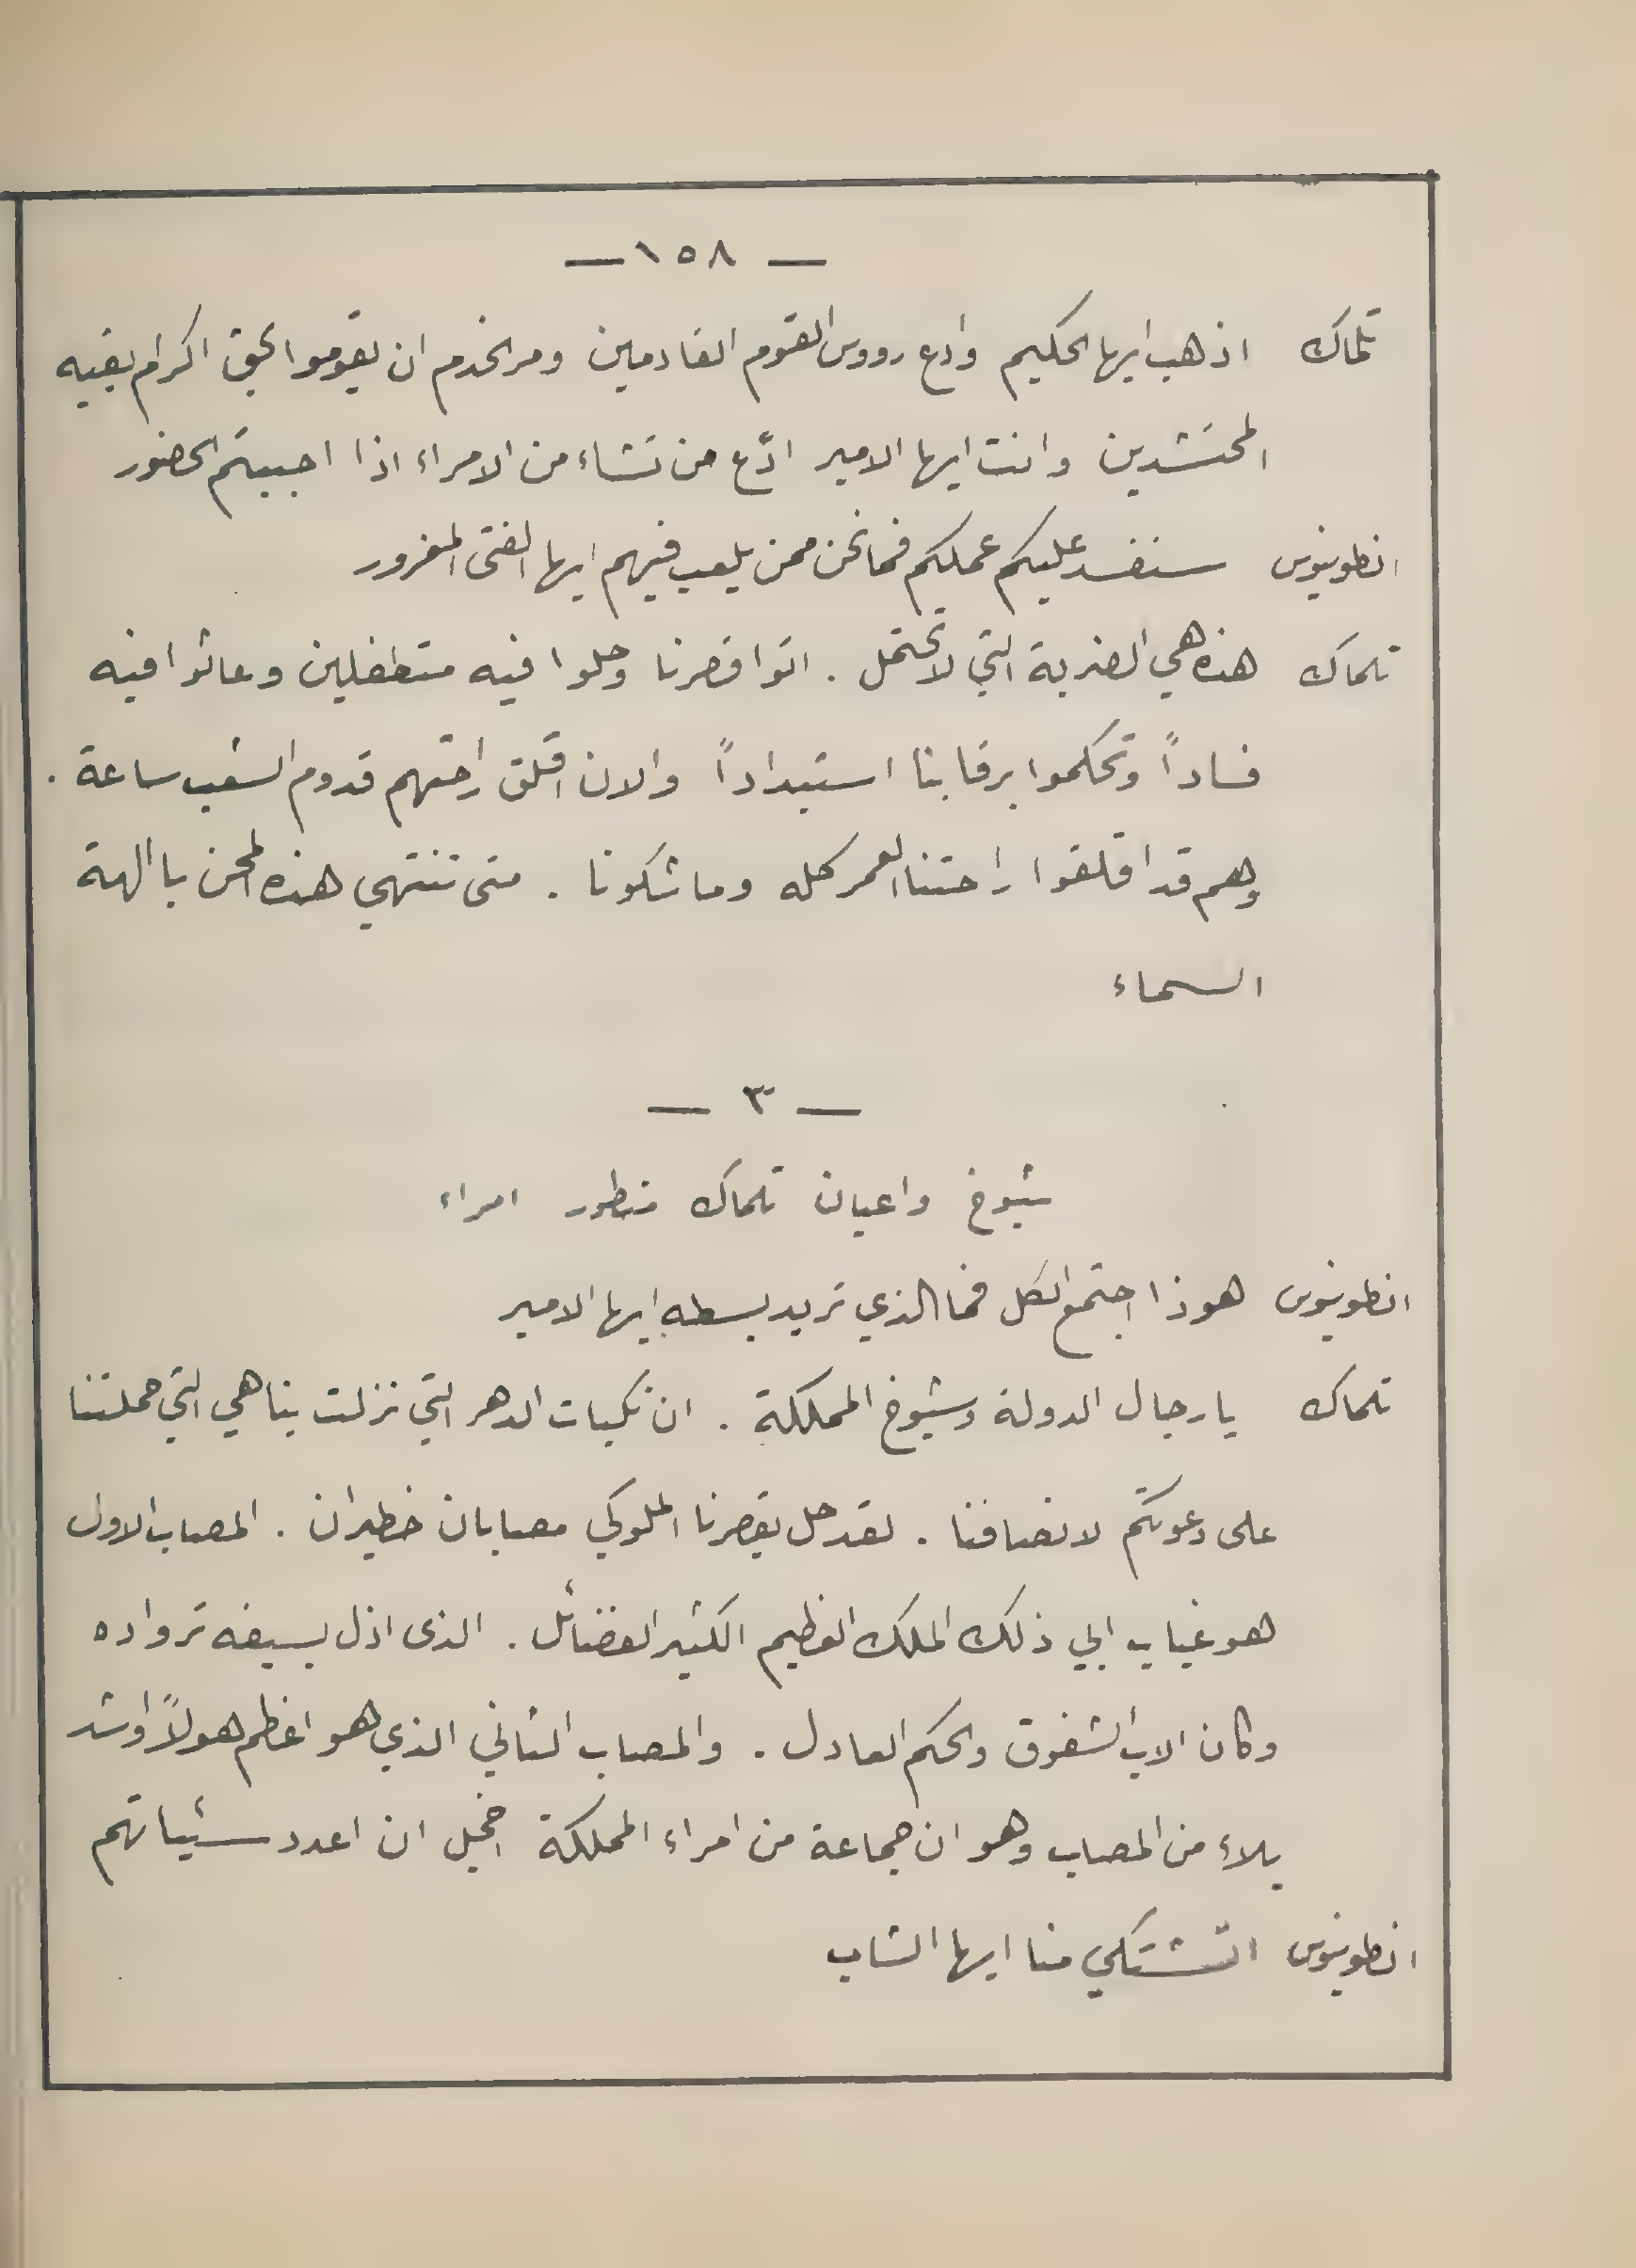 — ١٥٨ —
تلماك اذهب ايها الحكيم وادع رووس القوم القادمين ومر الخدم ان يقوموا بحق اكرام بقيه
المحتشدين وانت ايها الامير ادّع من تشاء من الامراء اذا احببتم الحضور
انطونيوس سنفسد عليكم عملكم فما نحن ممن يلعب فيهم ايها الفتى المغرور
تلماك هذه هي الضربة التي لا تحتمل . اتوا قصرنا وحلوا فيه متطفلين وعاثوا فيه
فساداً وتحكموا برقابنا استبداداً والان اقلق راحتهم قدوم الشعب ساعة .
وهم قد اقلقوا راحتنا العمر كله وما شكونا . متى تنتهي هذه المحن يا الهة
السماء
— ٣ —
شيوخ واعيان تلماك منطور امراء
انطونيوس هوذا اجتمع الكل فما الذي تريد بسطه ايها الامير
تلماك يا رجال الدولة وشيوخ المملكة . ان نكبات الدهر التي نزلت بنا هي التي حملتنا
على دعوتكم لانصافنا . لقد حل بقصرنا الملوكي مصابان خطيران . المصاب الاول
هو غياب ابي ذلك الملك العظيم الكثير الفضائل . الذى اذل بسيفه ترواده
وكان الاب الشفوق والحكم العادل . والمصاب الثاني الذي هو اعظم هولاً واشد
بلاء من المصاب وهو ان جماعة من امراء المملكة اخجل ان اعدد سئياتهم
انطونيوس اتشتكي منا ايها الشاب